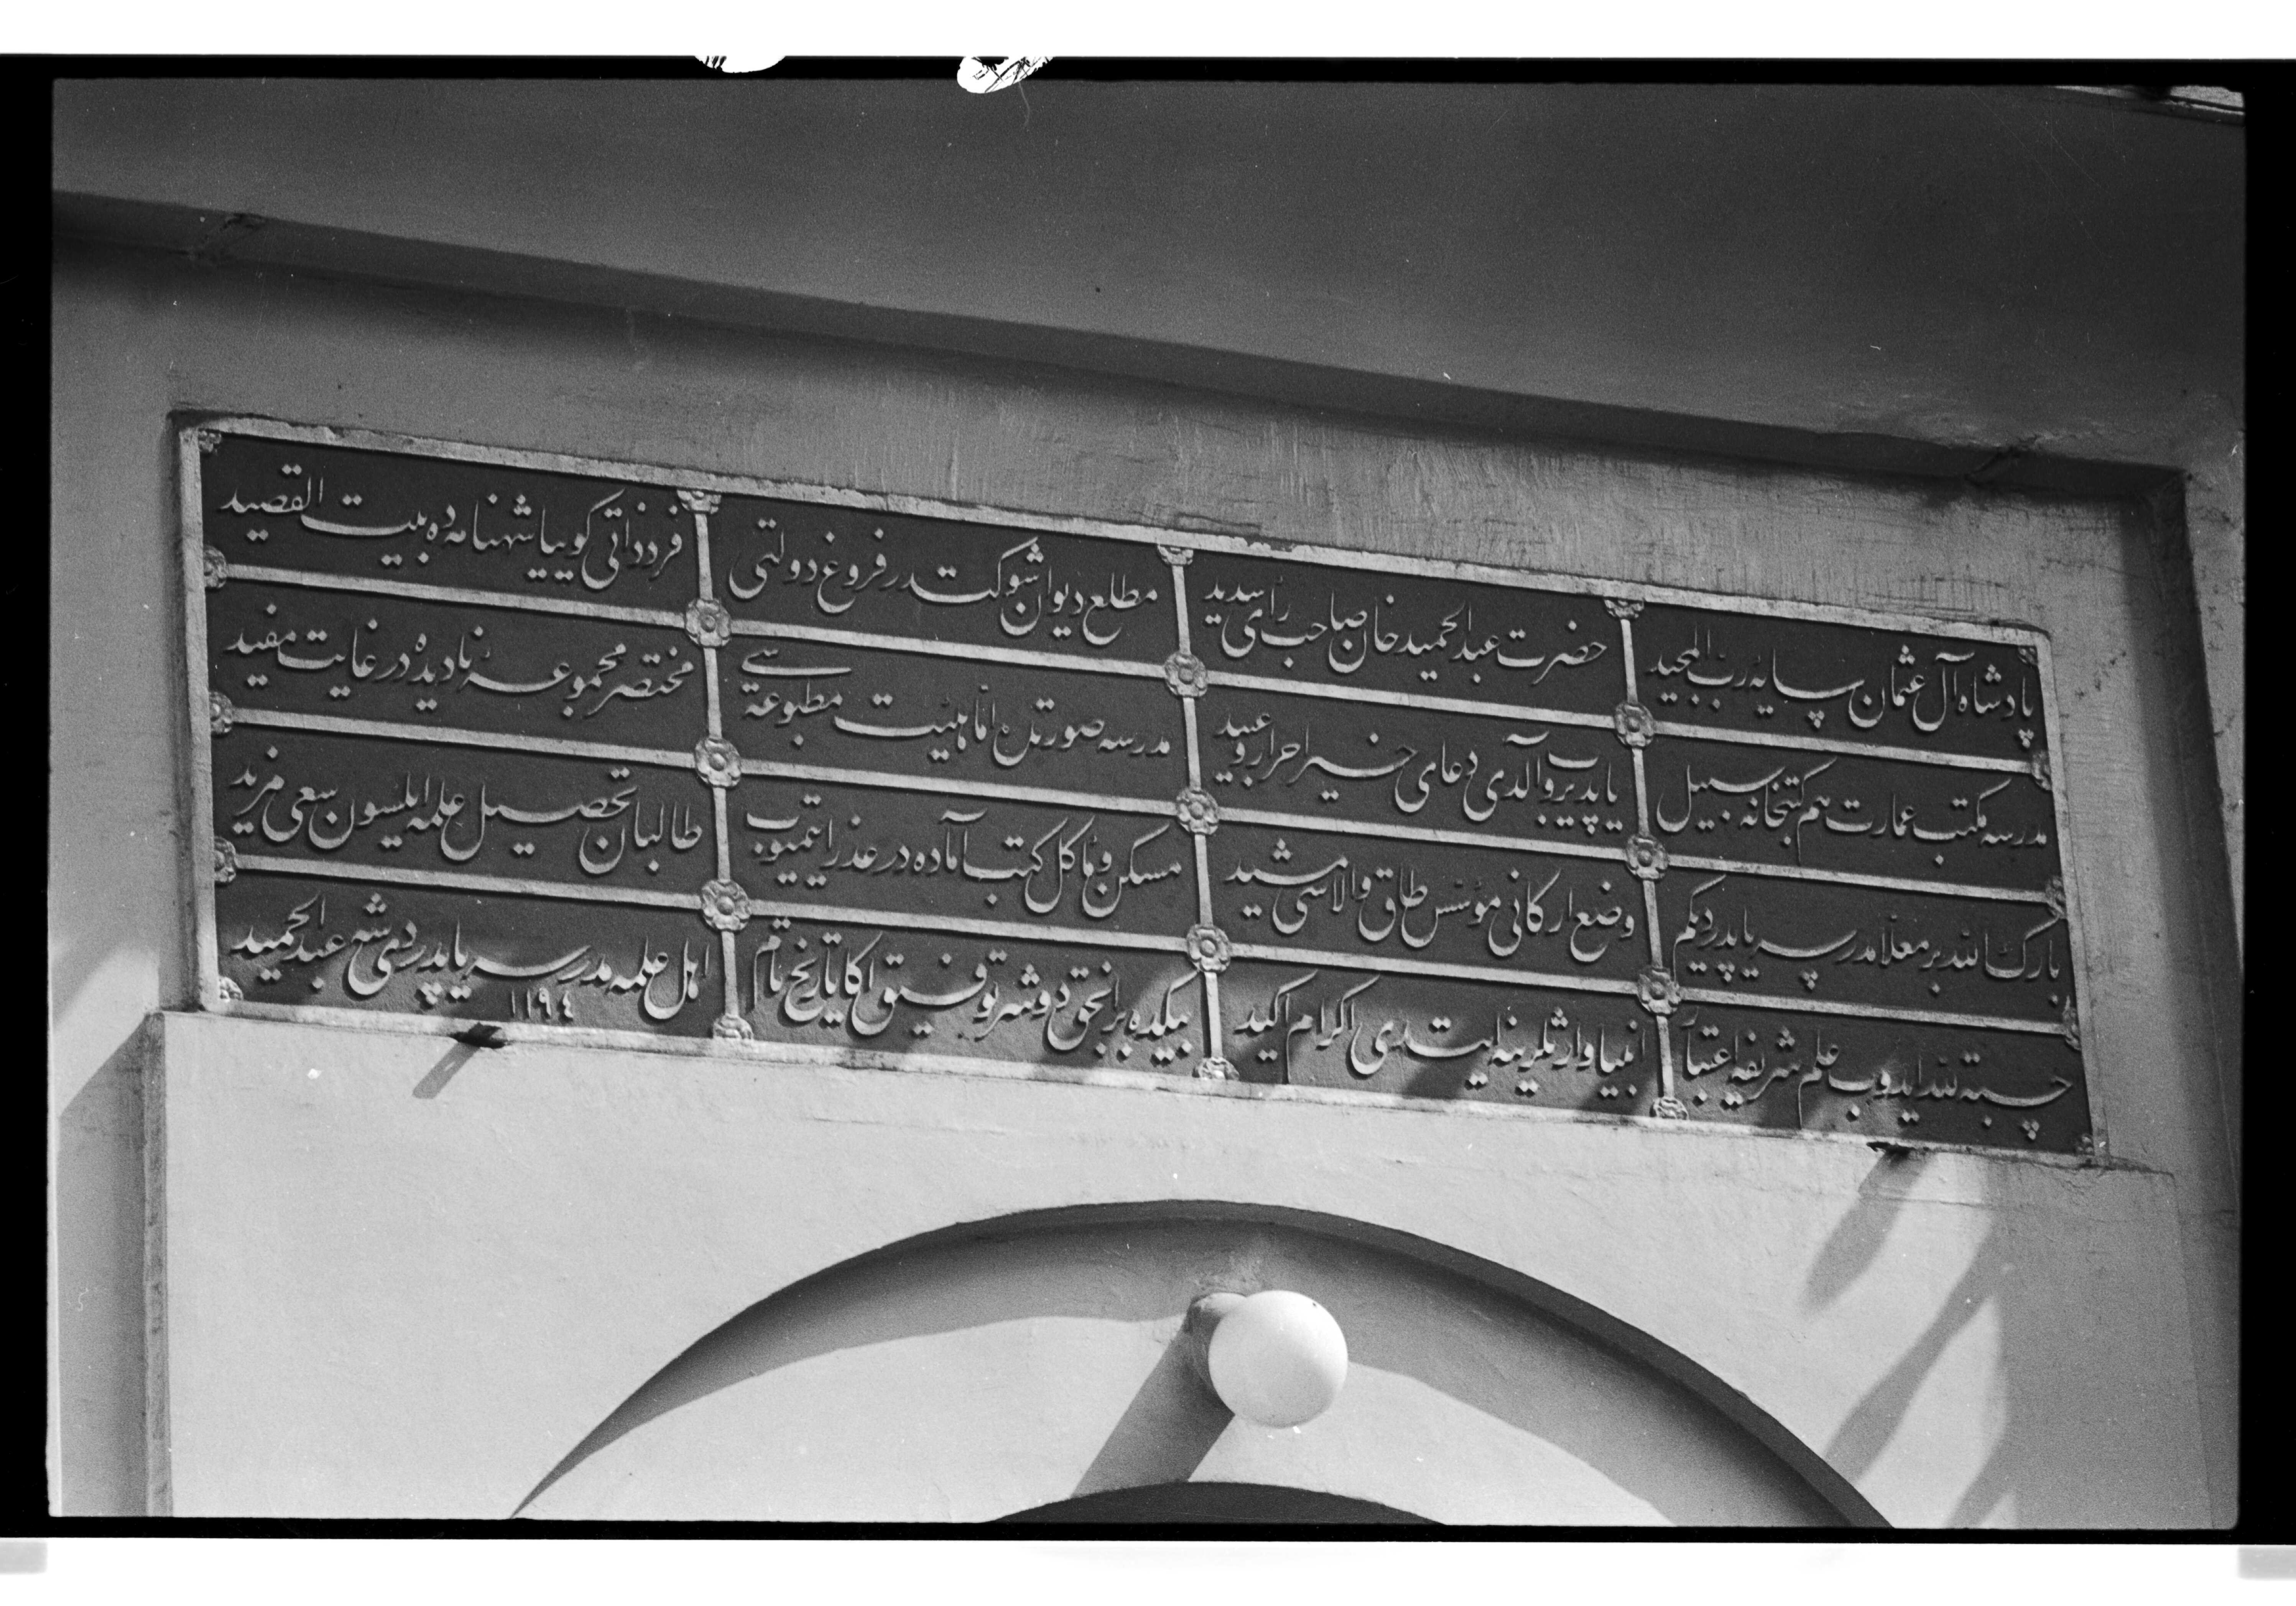 پادشاه آل عثمان سایهٔ رب المجید
حضرت عبدالحمید خان صاحب رأی سدید
مطلع دیوان شوکت در فروغ دولتی
فرد ذاتی کوییا شهنامه ده بیت القصید
مدرسه مکتب عمارت هم کتبخانه سبیل
یاپدیروب آلدی دعای خیر احرار و عبید
مدرسه صورتده اما هیئت مطبوعه سی
مختصر مجموعهٔ نادیده در غایت مفید
بارک الله بر معلا مدرسه یاپدردیکم
وضع ارکانی مؤسس طاق والاسی مشید
مسکن و مأکل کتب آماده در عذر ایتمیوب
طالبان تحصیل علمه ایلسون سعی مزید
حسبة لله ایدوب علم شریفه اعتبار
انبیا وارثلرینه ایتدی اکرام اکید
بیکده بر انجق دوشر توفیق اکا تاریخ تام
اهل علمه مدرسه یاپدردی شه عبدالحمید
١١٩٤